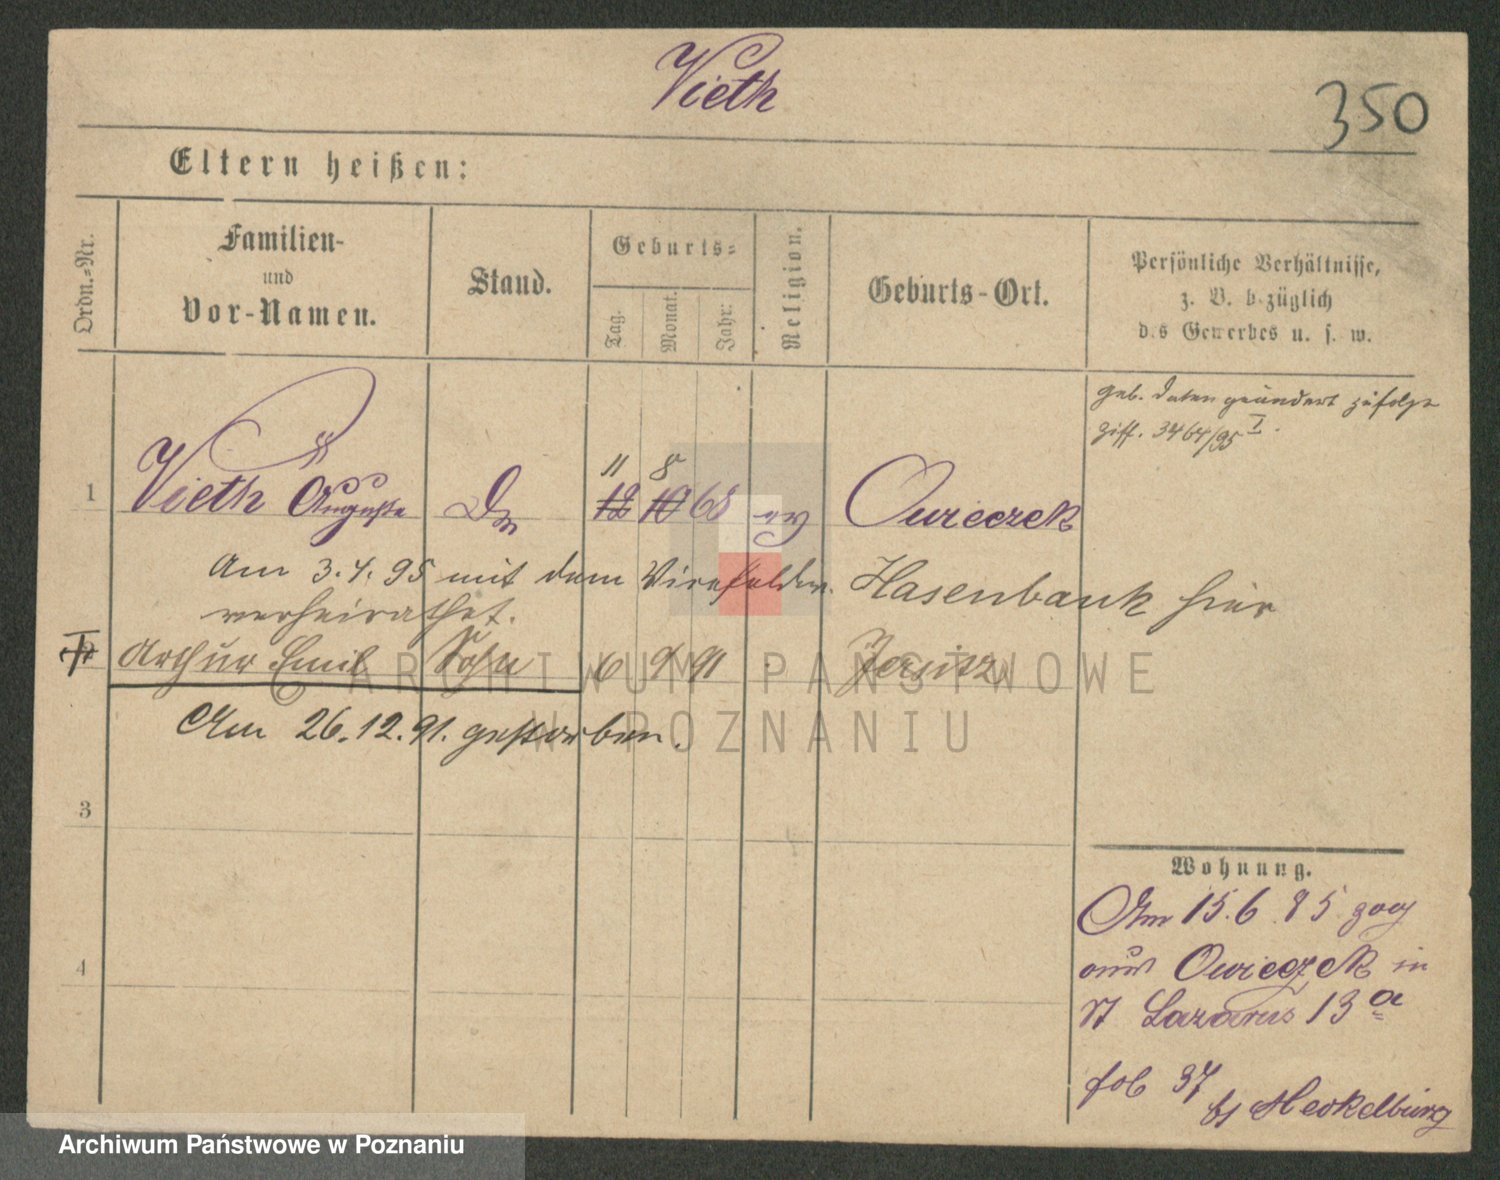 Vieth
350
Eltern heißen:
Ordn.=Nr.
Familien-
und
Vor-Namen.
Stand.
Geburts=
Tag.
Monat.
Jahr:
Religion.
Geburts-Ort.
Persönliche Verhältnisse,
z. B. bezüglich
des Gewerbes u. s. w.
geb. Daten geändert zufolge
Ziff. 3464/95 I.
11 8
1 Vieth Auguste 12 10 68 ev Owieczek
Am 3.4.95 mit dem Hasenbank hier
verheirathet.
2 Arthur Emil Sohn 6 9 91 Jersitz
Am 26.12.91. gestorben.
3
4
Wohnung.
Am 15.6.85 zog
aus Owieczek in
St Lazarus 13a
37
bei Heckelburg
© ARCHIWUM PAŃSTWOWE
W POZNANIU
Archiwum Państwowe w Poznaniu